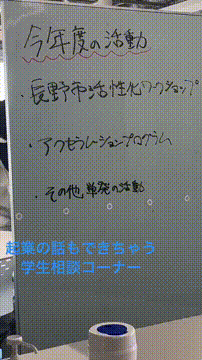 今年度の活動
・長野市活性化ワークショップ
・アクセラレーションプログラム
・その他単発の活動
起業の話もできちゃう
学生相談コーナー